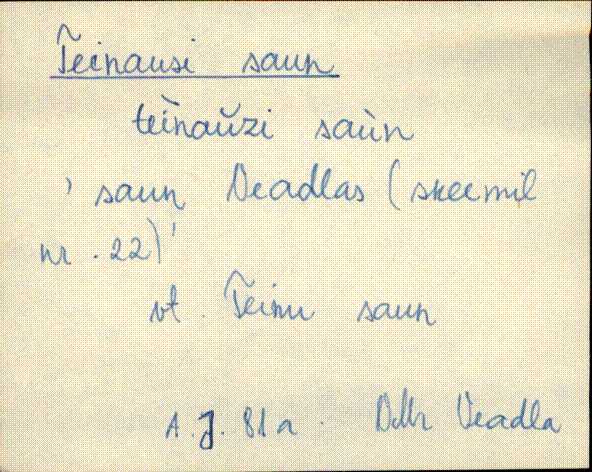 Teinausi saun
tèinaŭzi saùn
' saun Veadlas (skeemil
nr. 22)'
vt. Teinu saun
A. J. 81 a. Veadla